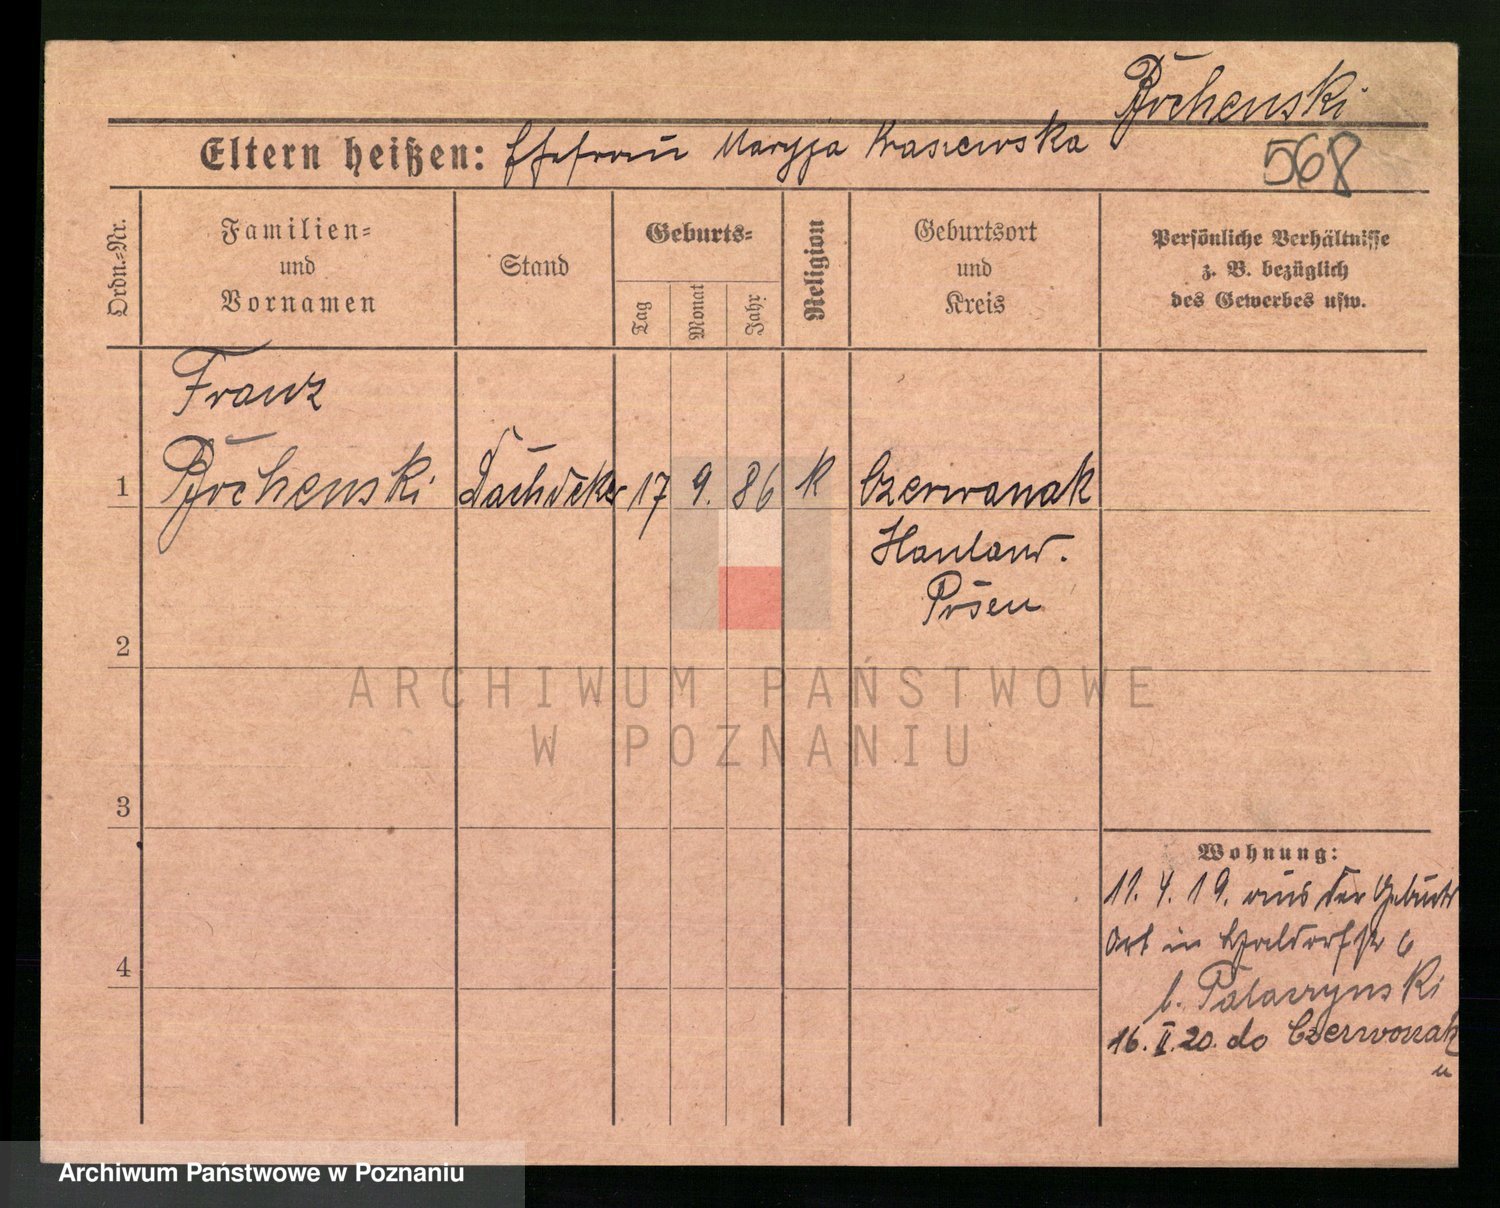 Bochenski
Eltern heißen: Ehefrau Maryja Kraszewska
568
Ordn.-Nr.
Familien-
und
Vornamen
Stand
Geburts-
Tag
Monat
Jahr
Religion
Geburtsort
und
Kreis
Persönliche Verhältnisse
z. B. bezüglich
des Gewerbes usw.
Franz
1 Bochenski Dachdeker 17 9. 86 K Czerwanak
Hauland.
Posen
2
ARCHIWUM PAŃSTWOWE
W POZNANIU
3
Wohnung:
11. 4. 19. aus der Geburts
Ort in 6
4
b.
16. II. 20. do Czerwonak
u
Archiwum Państwowe w Poznaniu